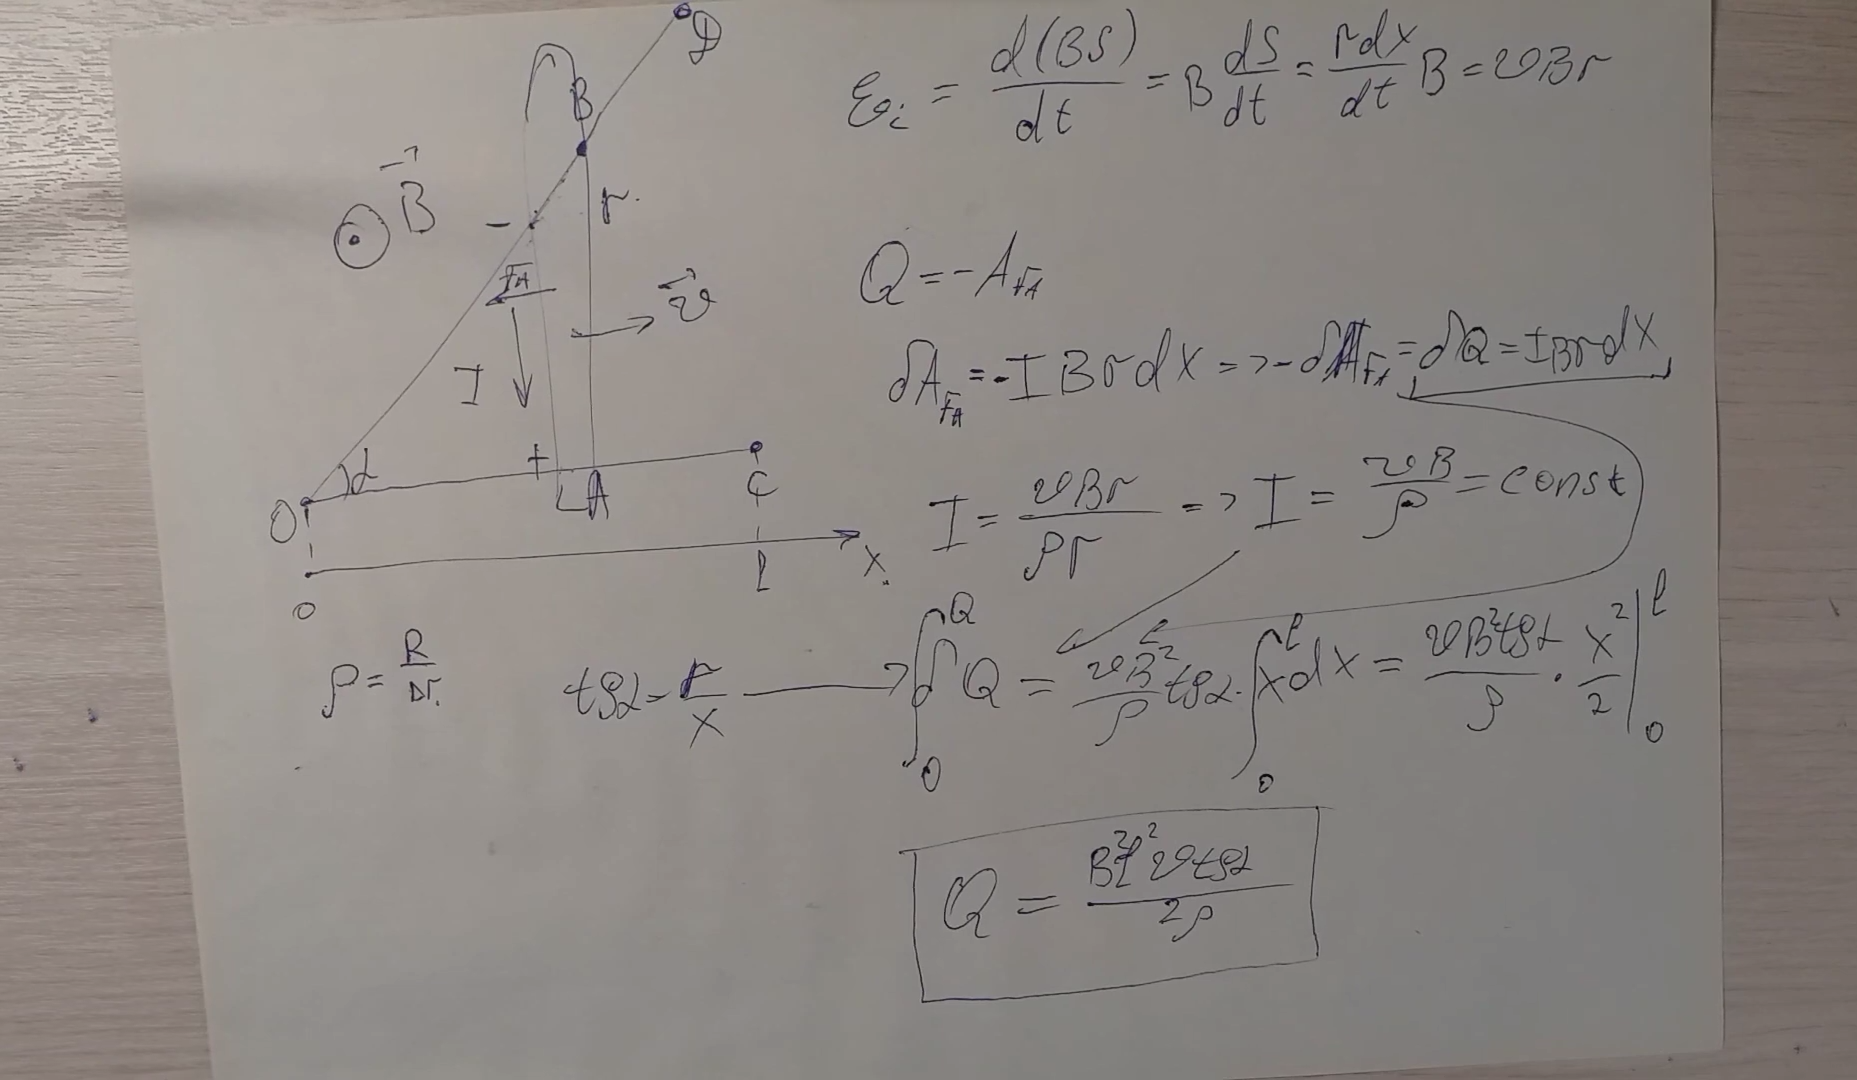 D
B
B⃗
r.
-
F_A
v⃗
I
+
α
O
L A
C
l
x
0
ρ = R/Δr.
tgα = r/x
ℰ_i = d(BS)/dt = B dS/dt = rdx/dt B = vBr
Q = -A_{F_A}
δA_{F_A} = -IBrdx => -δA_{F_A} = δQ = IBrdx
I = vBr/ρr => I = vB/ρ = const
∫_0^Q δQ = vB²/ρ tgα · ∫_0^l xdx = vB²tgα/ρ · x²/2 |_0^l
Q = B²l²vtgα/2ρ